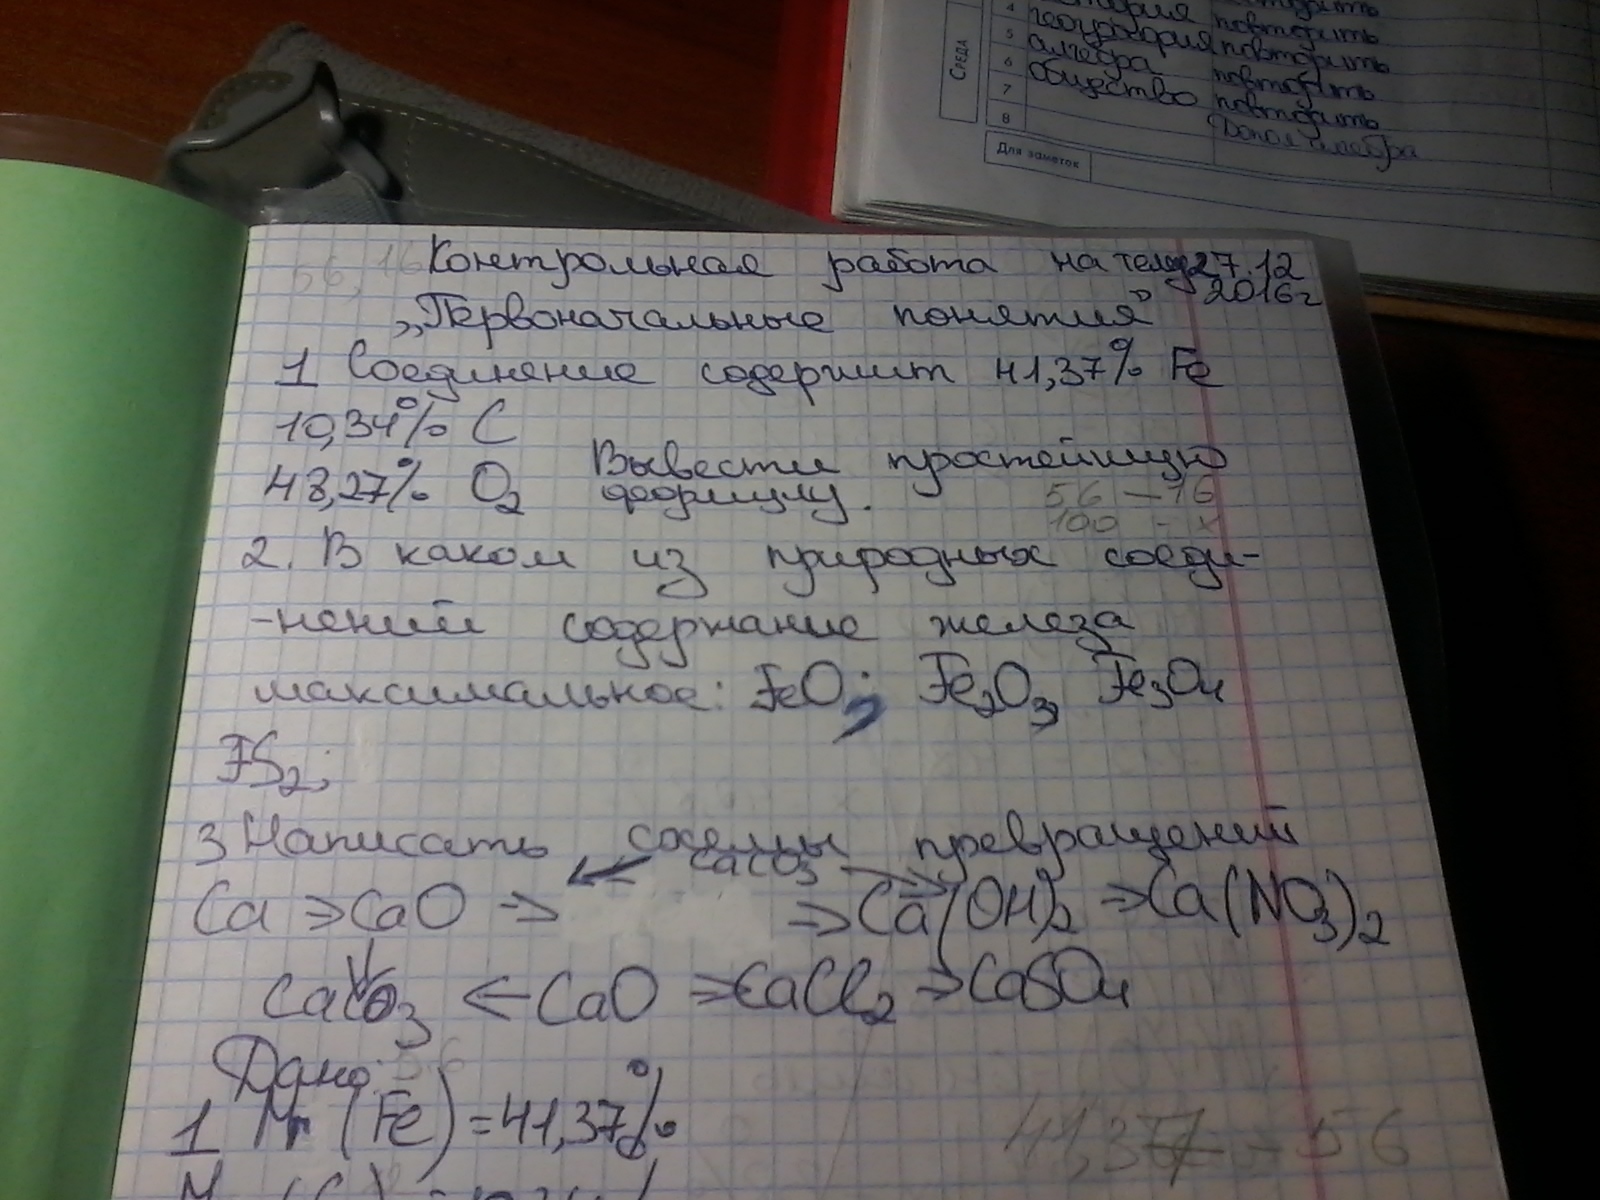 4 повторить
5 география повторить
6 алгебра повторить
7 общество повторить
8
СРЕДА
Для заметок
56, 16
Контрольная работа на тему 27.12
2016г
„Первоначальные понятия"
1 Соединение содержит 41,37% Fe
10,34% C
48,27% O2 Вывести простейшую
формулу.
56 — 16
100 - x
2. В каком из природных соеди-
-нений содержание железа
максимальное: FeO; Fe2O3, Fe3O4
FS2;
3 Написать схемы превращений
CaCO3
Ca ⇒ CaO ⇒ ⇒ Ca(OH)2 ⇒ Ca(NO3)2
CaCO3 ⇐ CaO ⇒ CaCl2 ⇒ CaSO4
Дано: 56
1 Mr (Fe) = 41,37%
41,37 - 56